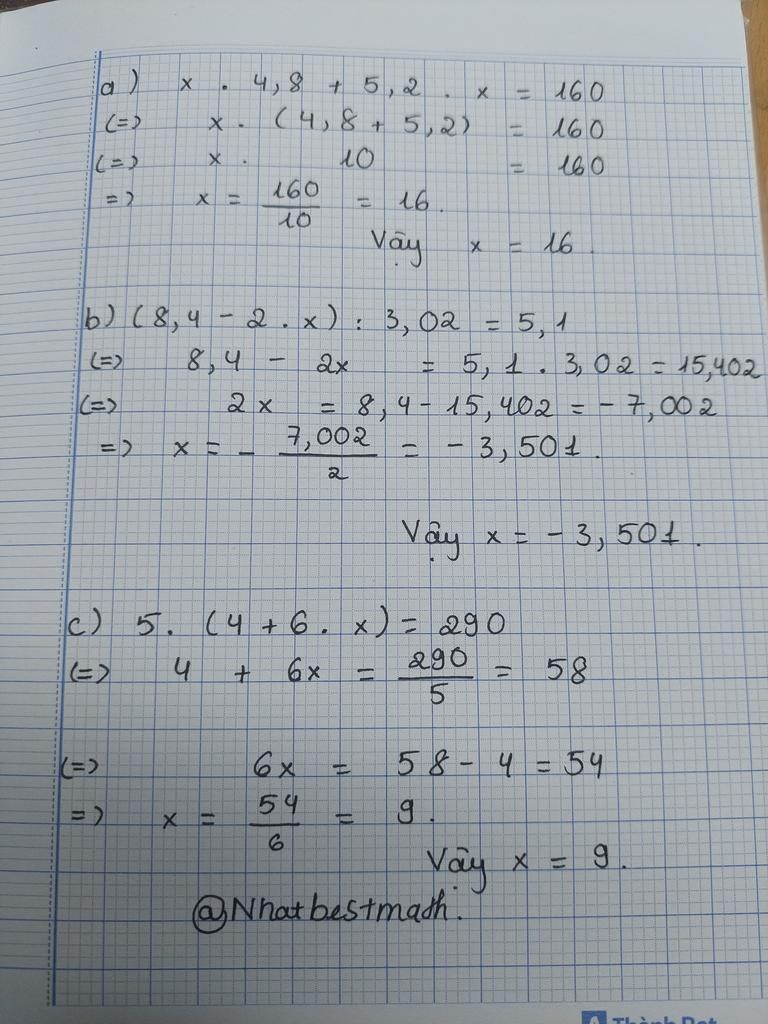 a) x . 4,8 + 5,2 . x = 160
(=) x . (4,8 + 5,2) = 160
(=) x . 10 = 160
=) x = 160/10 = 16.
Vậy x = 16.
b) (8,4 - 2 . x) : 3,02 = 5,1
(=) 8,4 - 2x = 5,1 . 3,02 = 15,402
(=) 2x = 8,4 - 15,402 = - 7,002
=) x = - 7,002/2 = - 3,501.
Vậy x = - 3,501.
c) 5. (4 + 6 . x) = 290
(=) 4 + 6x = 290/5 = 58
(=) 6x = 58 - 4 = 54
=) x = 54/6 = 9.
Vậy x = 9.
@Nhatbestmath.